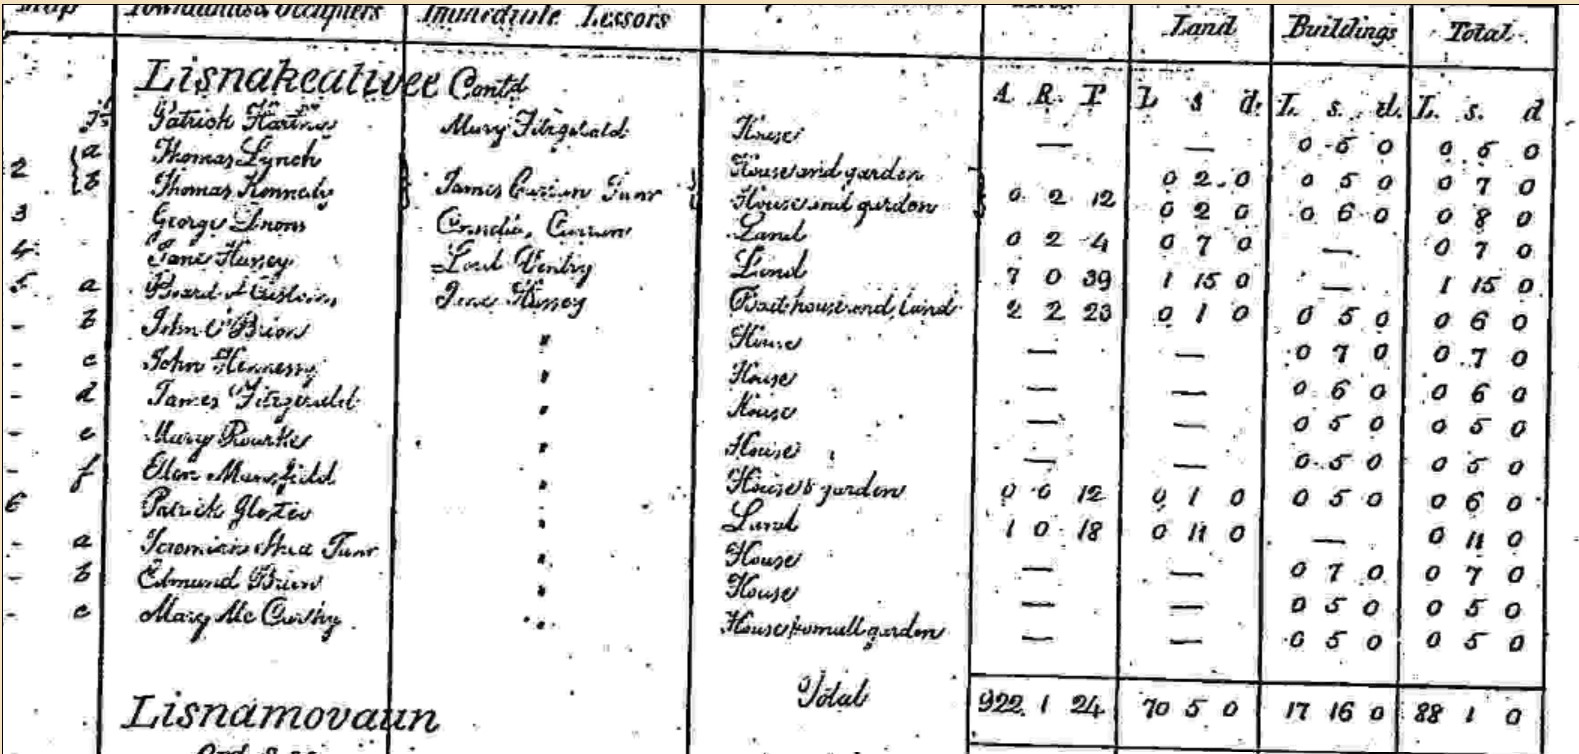 Map Townlands & Occupiers Immediate Lessors Land Buildings Total
Lisnakealwee Contd A R P L s d. L. s. d. L. s. d
Patrick Mary Fitzgerald House — — 0 5 0 0 5 0
2 a Thomas Lynch House and garden 0 2 0 0 5 0 0 7 0
b Thomas Kennedy James Curran Junr House and garden 0 2 12 0 2 0 0 6 0 0 8 0
3 George Curran Land 0 2 4 0 7 0 — 0 7 0
4 Jane Hussey Lord Ventry Land 7 0 39 1 15 0 — 1 15 0
5 a Board of Customs Jane Hussey Boat house and Land 2 2 23 0 1 0 0 5 0 0 6 0
- b John O'Brien " House — — 0 7 0 0 7 0
- c John Hennessy " House — — 0 6 0 0 6 0
- d James Fitzgerald " House — — 0 5 0 0 5 0
- e Mary Rourke " House — — 0 5 0 0 5 0
- f Ellen Mansfield " House & garden 0 0 12 0 1 0 0 5 0 0 6 0
6 Patrick Gloster " Land 1 0 18 0 11 0 — 0 11 0
- a Jeremiah Shea Junr " House — — 0 7 0 0 7 0
- b Edmund Brien " House — — 0 5 0 0 5 0
- c Mary Mc Carthy " House & small garden — — 0 5 0 0 5 0
Total 922 1 24 70 5 0 17 16 0 88 1 0
Lisnamovaun